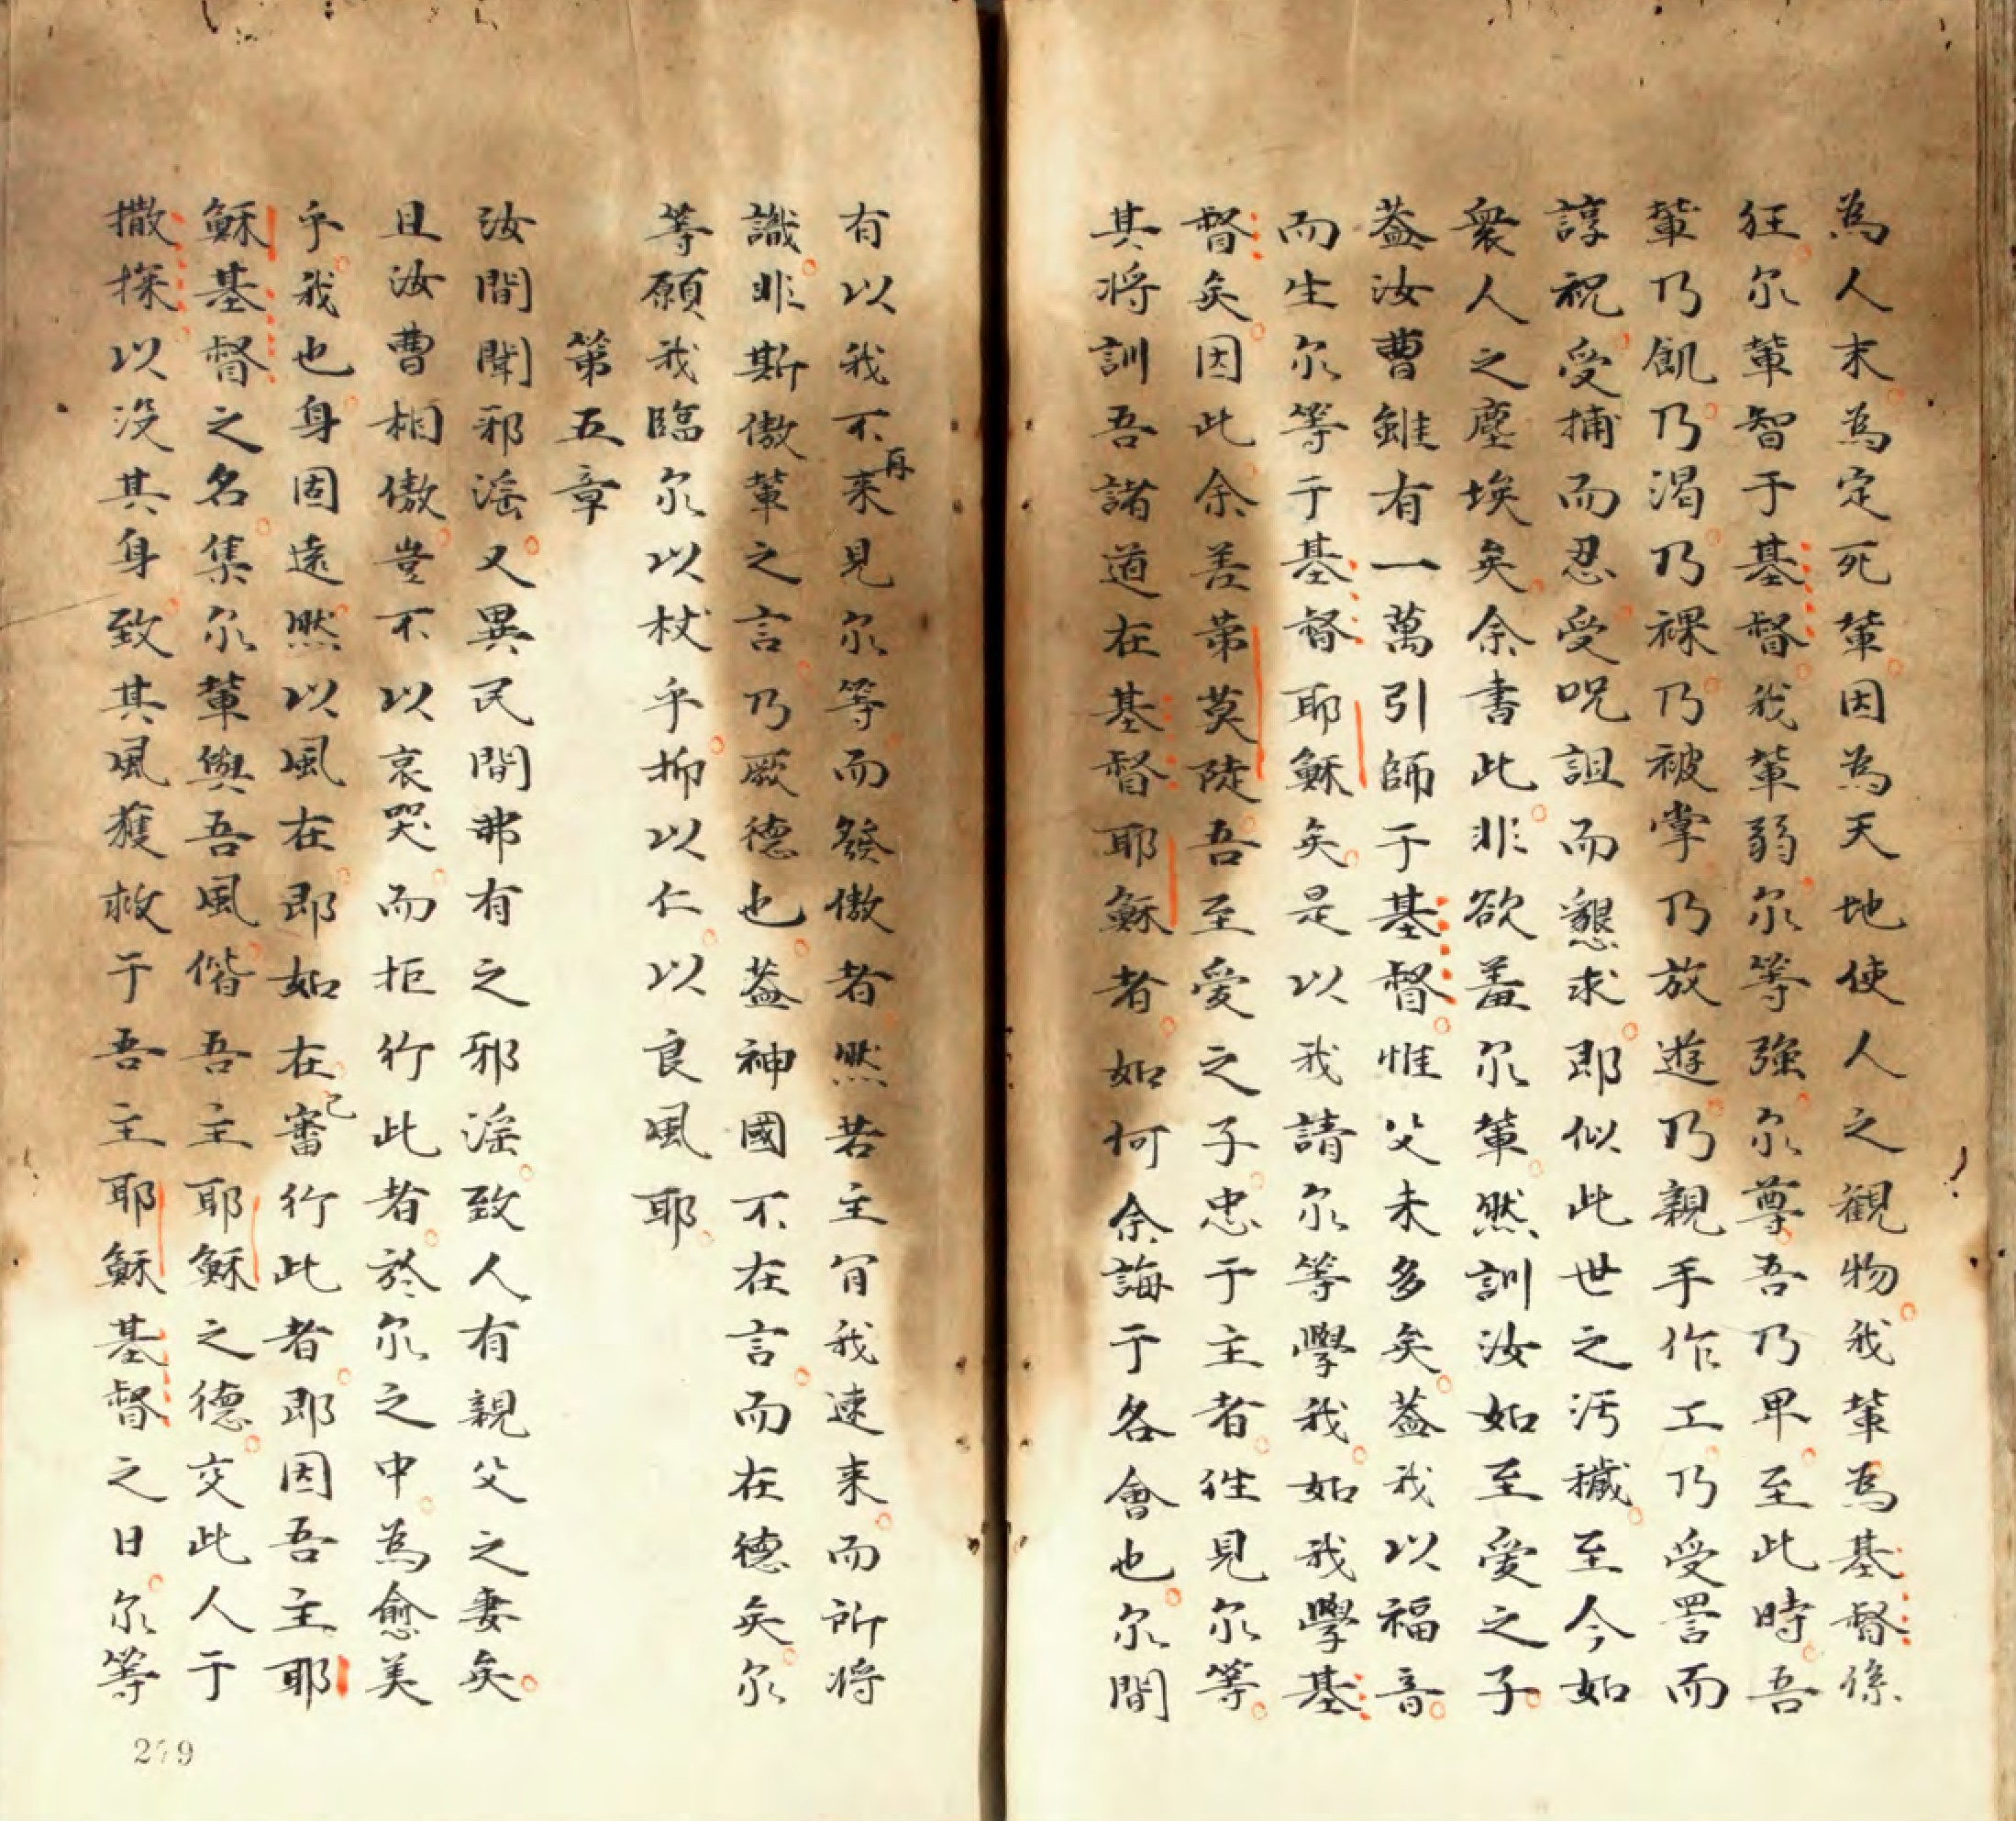 為人末為定死輩因為天地使人之觀物我輩為基督係
狂尔輩智于基督我輩弱尔等強尔尊吾乃卑至此時吾
輩乃飢乃渴乃裸乃被掌乃放遊乃親手作工乃受詈而
諄祝受捕而忍受呪詛而懇求即似此世之污穢至今如
衆人之塵埃矣余書此非欲羞尔輩然訓汝如至愛之子
葢汝曹雖有一萬引師于基督惟父未多矣葢我以福音
而生尔等于基督耶穌矣是以我請尔等學我如我學基
督矣因此余善第莫陡吾至愛之子忠于主者徃見尔等
其将訓吾諸道在基督耶穌者如何余誨于各會也尔間
有以我不再来見尔等而發傲者然若主肎我速来而所将
識非斯傲輩之言乃厥德也葢神國不在言而在德矣尔
等願我臨尔以杖乎抑以仁以良風耶
第五章
汝間聞邪滛又異民間弗有之邪滛致人有親父之妻矣
且汝曹相傲豈不以哀哭而拒行此者於尔之中為愈美
乎我也身固遠然以風在即如在已審行此者即因吾主耶
穌基督之名集尔輩與吾風偕吾主耶穌之德交此人于
撒探以没其身致其風獲救于吾主耶穌基督之日尔等
279